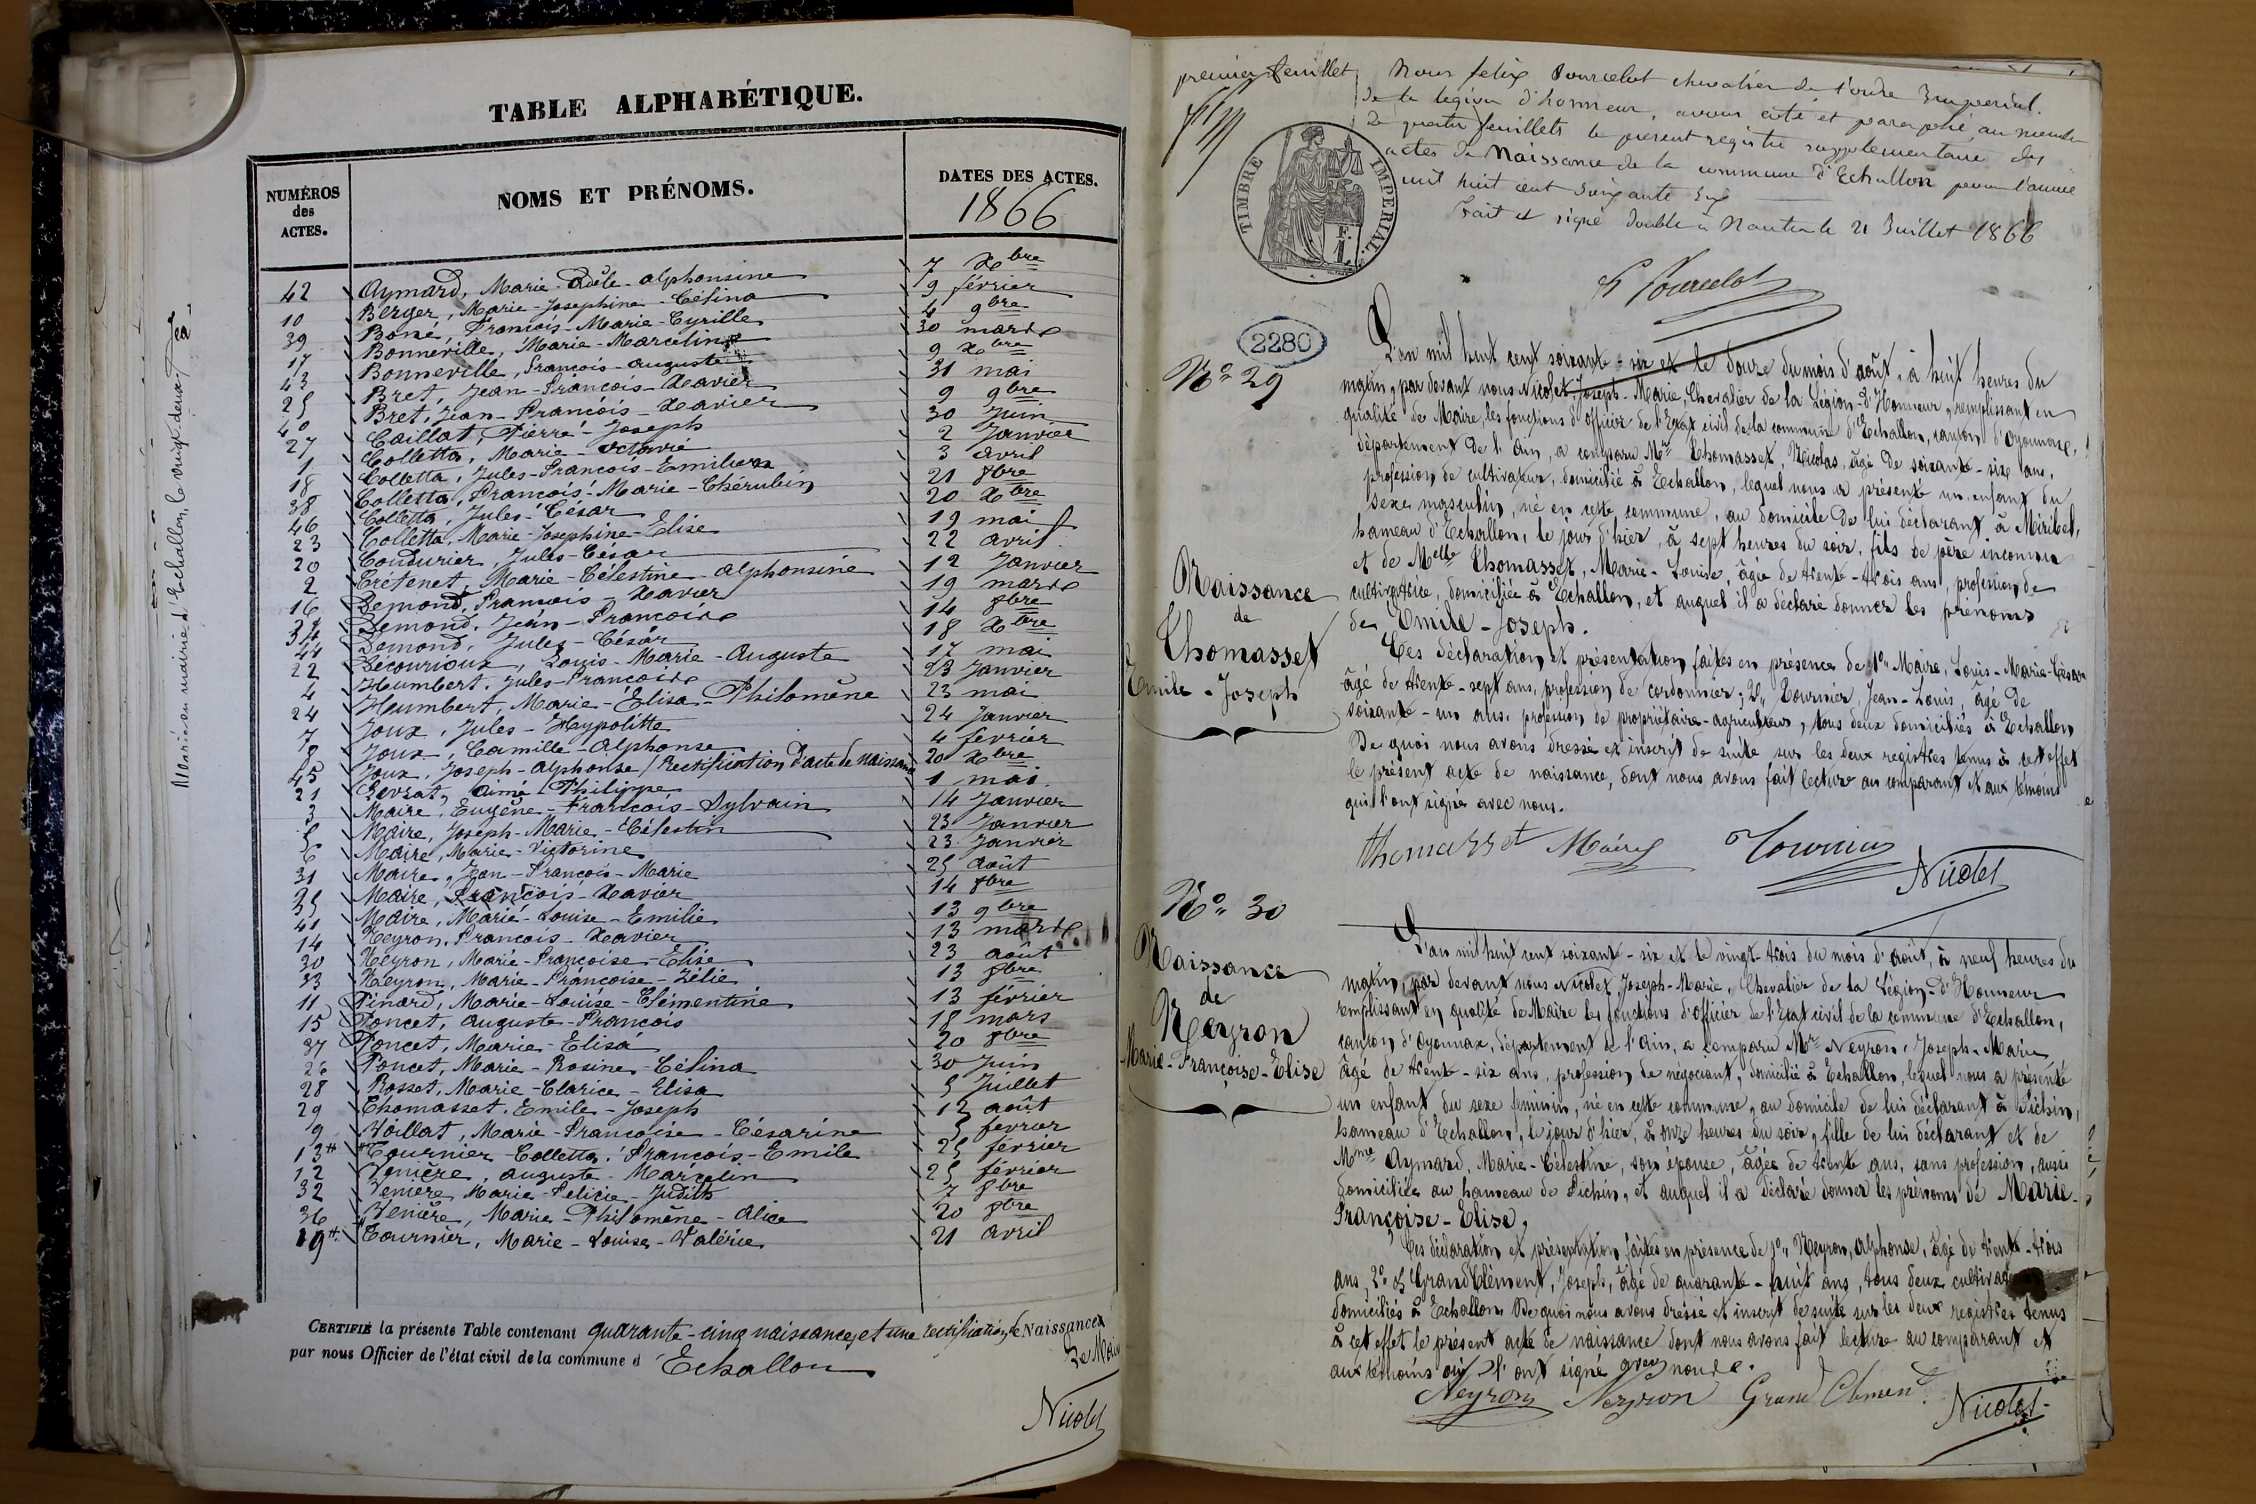 TABLE ALPHABÉTIQUE.
NUMÉROS des ACTES.
NOMS ET PRÉNOMS.
DATES DES ACTES.
1866
42 Aymard, Marie-Adèle-Alphonsine 7 Xbre
10 Berger, Marie-Josephine-Célina 9 février
39 Boné, François-Marie-Cyrille 4 9bre
17 Bonneville, Marie-Marceline 30 mars
43 Bonneville, François-Auguste 9 Xbre
25 Bret, Jean-François-Xavier 31 mai
40 Bret, Jean-François-Xavier 9 9bre
27 Caillat, Pierre-Joseph 30 Juin
1 Colletta, Marie-Octavie 2 Janvier
18 Colletta, Jules-François-Emilien 3 avril
38 Colletta, François-Marie-Chérubin 21 8bre
46 Colletta, Jules-César 20 Xbre
23 Colletta, Marie-Josephine-Elise 19 mai
20 Coudurier, Jules-César 22 avril
2 Crétenet, Marie-Célestine-Alphonsine 12 Janvier
16 Demond, François-Xavier 19 mars
34 Demond, Jean-François 14 8bre
44 Demond, Jules-César 18 Xbre
22 Décourioux, Louis-Marie-Auguste 17 mai
4 Humbert, Jules-François 23 Janvier
24 Humbert, Marie-Elisa-Philomène 23 mai
7 Joux, Jules-Hypolitte 24 Janvier
8 Joux, Camille-Alphonse 4 février
45 Joux, Joseph-Alphonse (Rectification d'acte de Naissance 20 Xbre
21 Levrat, Aimé-Philippe 1 mai
3 Maire, Eugène-François-Sylvain 14 Janvier
5 Maire, Joseph-Marie-Célestin 23 Janvier
6 Maire, Marie-Victorine 23 Janvier
31 Maire, Jean-François-Marie 25 août
35 Maire, François-Xavier 14 8bre
41 Maire, Marie-Louise-Emilie 13 9bre
14 Neyron, François-Xavier 13 mars
30 Neyron, Marie-Françoise-Elise 23 août
33 Neyron, Marie-Françoise-Zélie 13 8bre
11 Pinard, Marie-Louise-Clémentine 13 février
15 Poncet, Auguste-François 18 mars
37 Poncet, Marie-Elisa 20 8bre
26 Poncet, Marie-Rosine-Célina 30 Juin
28 Rosset, Marie-Clarice-Elisa 5 Juillet
29 Thomasset, Emile-Joseph 12 août
9 Voillat, Marie-Françoise-Césarine 5 février
13 Tournier-Colletta, François-Emile 25 février
12 Venière, Auguste-Marcelin 25 février
32 Venière, Marie-Félicie-Judith 7 8bre
36 Venière, Marie-Philomène-Alice 20 8bre
19 Tournier, Marie-Louise-Valérie 21 avril
CERTIFIÉ la présente Table contenant quarante-cinq naissances et une rectification de Naissances
par nous Officier de l'état civil de la commune d'Echallon
Le Maire
Nicolet
premier feuillet
Nous felix Pourcelot chevalier de l'ordre Imperial
de la légion d'honneur, avons coté et paraphé au nombre
de quatre feuillets le present registre supplementaire des
actes de Naissance de la commune d'Echallon pour l'année
mil huit cent soixante six
Fait et signé double à Nantua le 21 Juillet 1866
F Pourcelot
TIMBRE IMPERIAL.
2280
No 29
Naissance
de
Thomasset
Emile-Joseph
L'an mil huit cent soixante-six et le douze du mois d'août, à huit heures du
matin, par devant nous Nicolet Joseph-Marie, Chevalier de la Légion-d'Honneur, remplissant en
qualité de Maire, les fonctions d'officier de l'Etat civil de la commune d'Echallon, canton d'Oyonnax,
département de l'Ain, a comparu Mr Thomasset, Nicolas, âgé de soixante-six ans,
profession de cultivateur, domicilié à Echallon, lequel nous a présenté un enfant du
sexe masculin, né en cette commune, au domicile de lui déclarant, à Miribel,
hameau d'Echallon, le jour d'hier, à sept heures du soir, fils de père inconnu
et de Melle Thomasset, Marie-Louise, âgée de trente-trois ans, profession de
cultivatrice, domiciliée à Echallon, et auquel il a déclaré donner les prénoms
de Emile-Joseph.
Ces déclaration et présentation faites en présence de 1o Maire, Louis-Marie-César
âgé de trente-sept ans, profession de cordonnier; 2o Tournier, Jean-Louis, âgé de
soixante-un ans, profession de propriétaire-agriculteur, tous deux domiciliés à Echallon
De quoi nous avons dressé et inscrit de suite sur les deux registres tenus à cet effet
le présent acte de naissance, dont nous avons fait lecture au comparant et aux témoins
qui l'ont signé avec nous.
thomasset Maire Tournier
Nicolet
No 30
Naissance
de
Neyron
Marie-Françoise-Elise
L'an mil huit cent soixante-six et le vingt-trois du mois d'août, à neuf heures du
matin, par devant nous Nicolet Joseph-Marie, Chevalier de la Légion-d'Honneur
remplissant en qualité de Maire les fonctions d'officier de l'Etat civil de la commune d'Echallon,
canton d'Oyonnax, département de l'Ain, a comparu Mr Neyron, Joseph-Marie,
âgé de trente-six ans, profession de négociant, domicilié à Echallon, lequel nous a présenté
un enfant du sexe féminin, né en cette commune, au domicile de lui déclarant à Lichin,
hameau d'Echallon, le jour d'hier, à onze heures du soir, fille de lui déclarant et de
Mme Aymard, Marie-Célestine, son épouse, âgée de trente ans, sans profession, aussi
domiciliée au hameau de Lichin, et auquel il a déclaré donner les prénoms de Marie-
Françoise-Elise.
Ces déclaration et présentation faites en présence de 1o Neyron, Alphonse, âgé de trente-trois
ans, 2o Grand Clément, Joseph, âgé de quarante-huit ans, tous deux
domiciliés à Echallon. De quoi nous avons dressé et inscrit de suite sur les deux registres tenus
à cet effet le présent acte de naissance dont nous avons fait lecture au comparant et
aux témoins qui l'ont signé avec nous.
Neyron Neyron Grand Clément
Nicolet